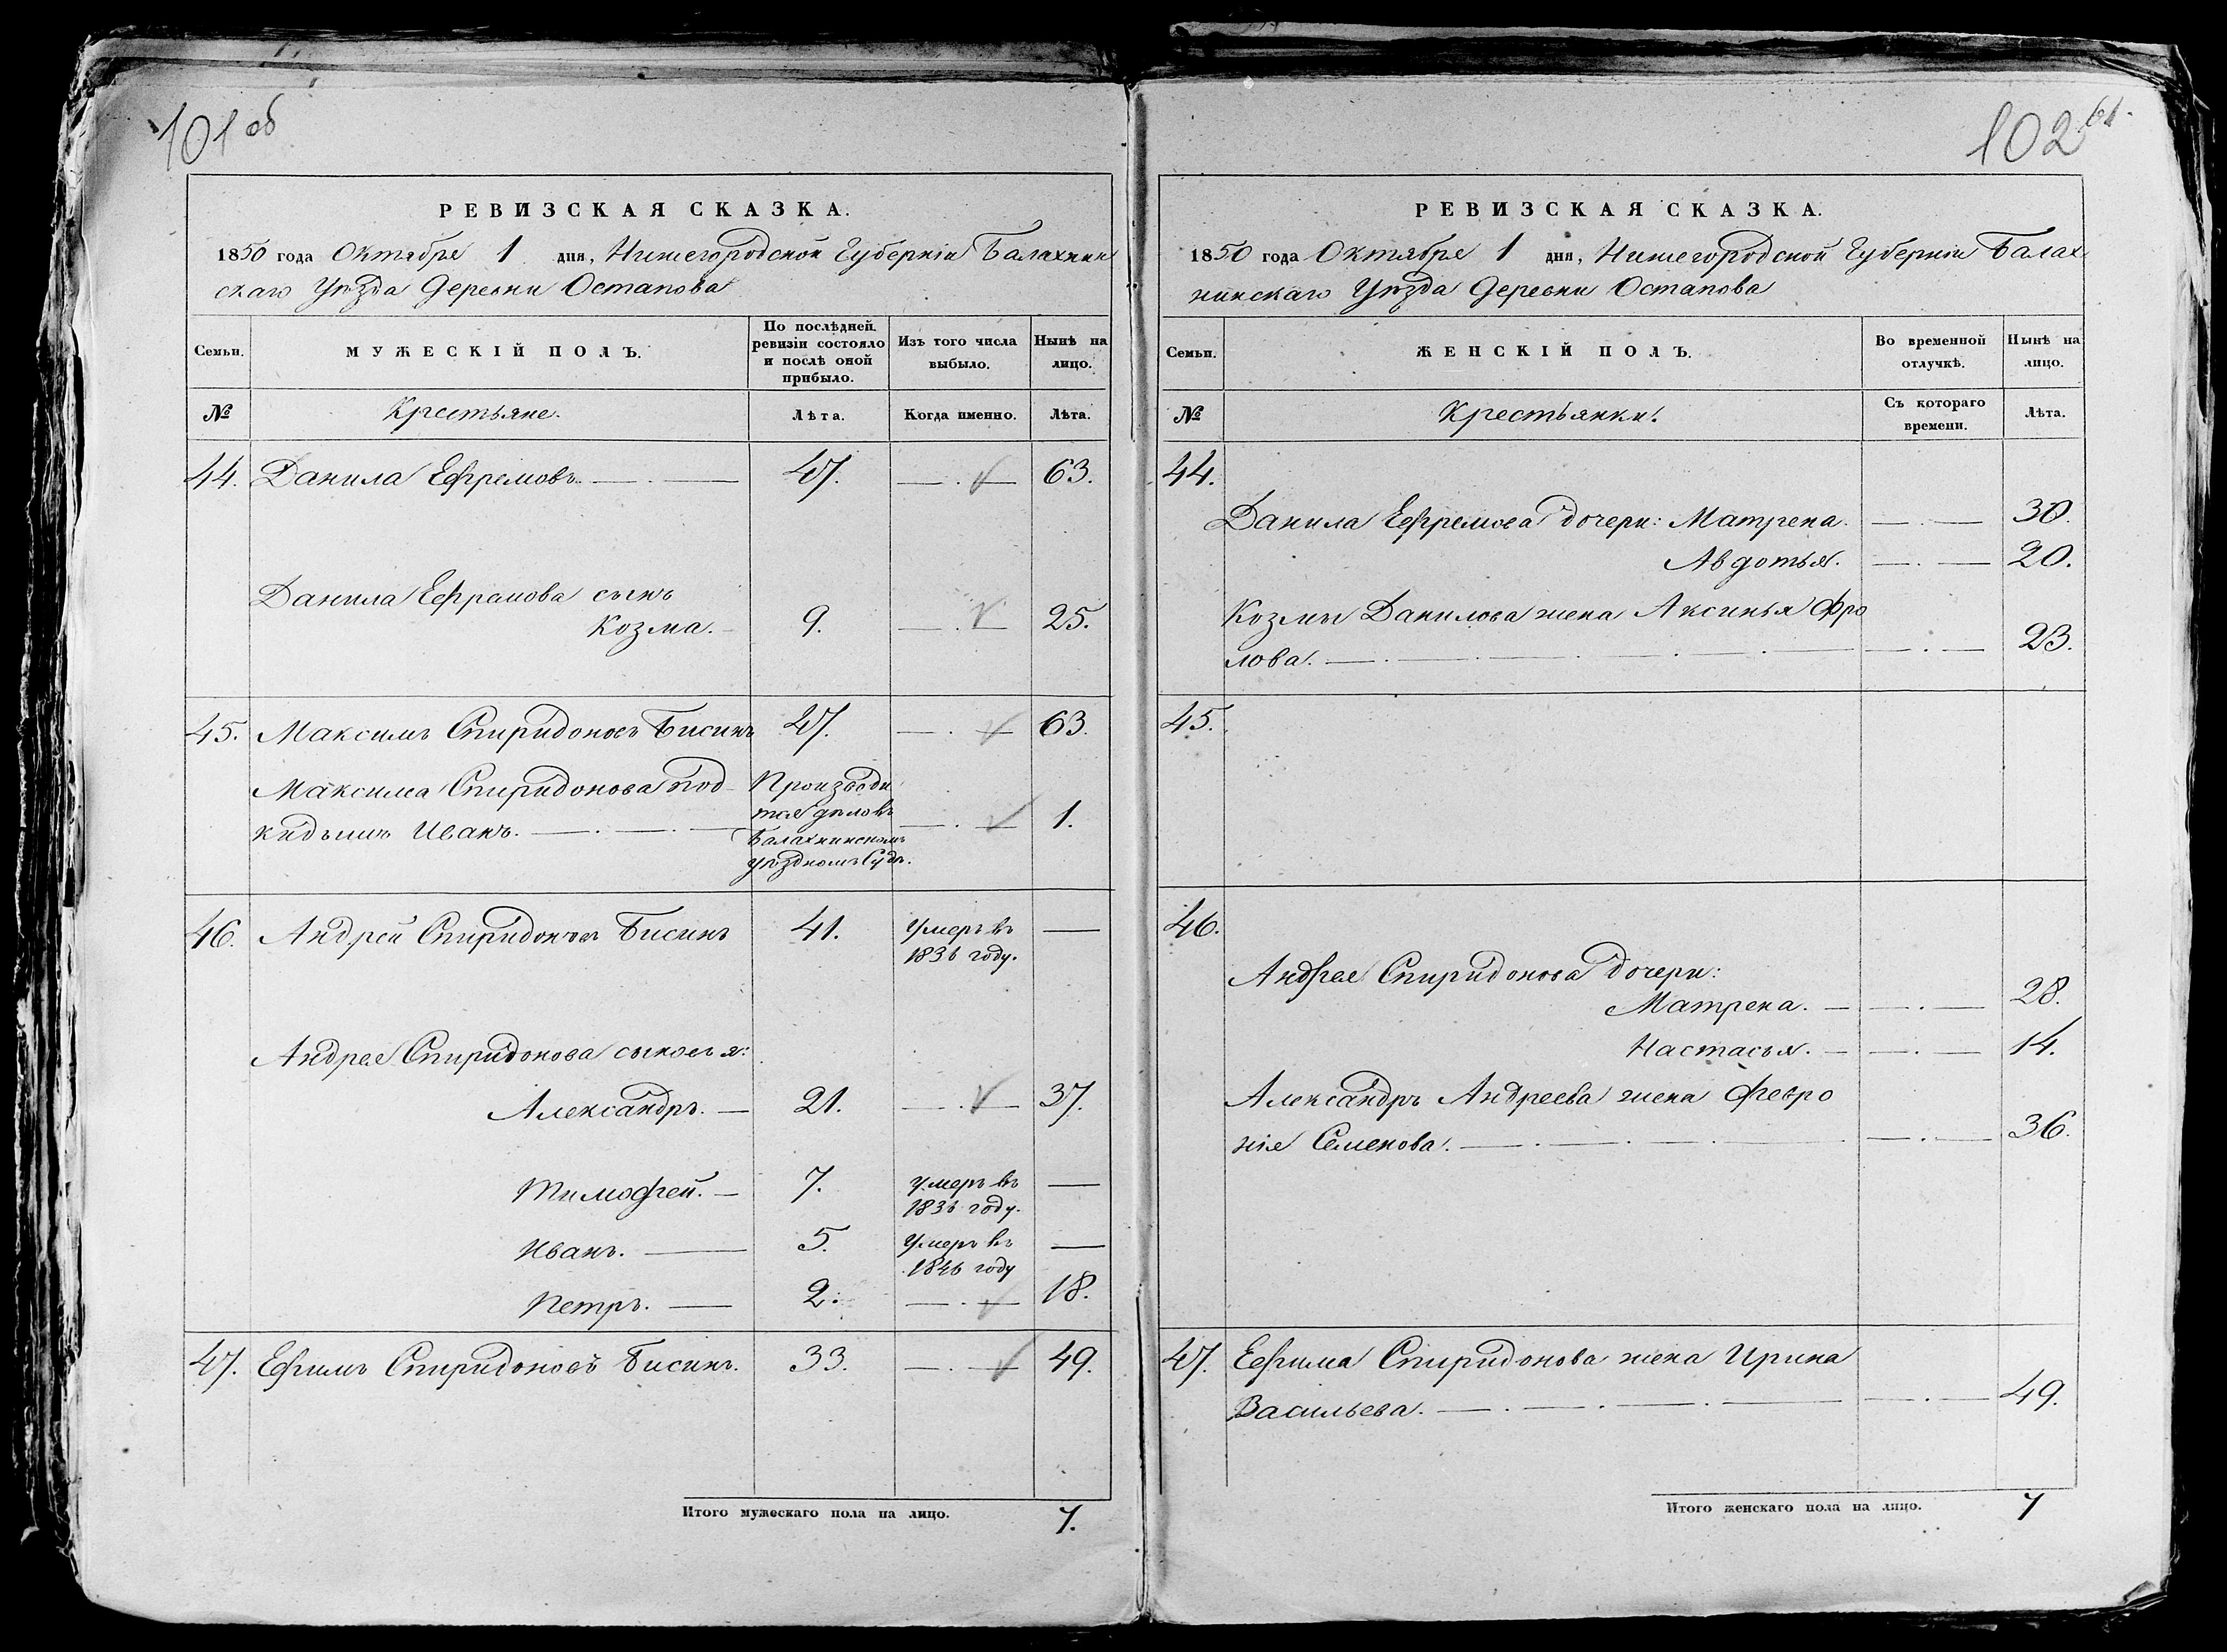 101 об
РЕВИЗСКАЯ СКАЗКА.
1850 года Октября 1 дня, Нижегородской Губерніи Балахнин
скаго Уѣзда Деревни Остапова
Семьи.
МУЖЕСКІЙ ПОЛЪ.
По послѣдней
ревизіи состояло
и послѣ оной
прибыло.
Изъ того числа
выбыло.
Нынѣ на
лицо.
№ Крестьяне. Лѣта. Когда именно. Лѣта.
44. Данила Ефремовъ. 47. 63.
Данила Ефремова сынъ
Козма. 9. 25.
45. Максимъ Спиридоновъ Бисинъ 47. 63.
Максима Спиридонова под
кидышъ Иванъ. 1.
Производи
тся дѣло въ
Балахнинскомъ
уѣздномъ Судѣ.
46. Андрей Спиридоновъ Бисинъ 41. Умеръ въ —
1836 году.
Андрея Спиридонова сыновья:
Александръ. 21. 37.
Тимофей. 7. Умеръ въ —
1836 году.
Иванъ. 5. Умеръ въ —
1846 году
Петръ. 2. 18.
47. Ефимъ Спиридоновъ Бисинъ. 33. 49.
Итого мужескаго пола на лицо. 7.
102 61.
РЕВИЗСКАЯ СКАЗКА.
1850 года Октября 1 дня, Нижегородской Губерніи Балах
нинскаго Уѣзда Деревни Остапова
Семьи.
ЖЕНСКІЙ ПОЛЪ.
Во временной
отлучкѣ.
Нынѣ на
лицо.
№ Крестьянки. Съ котораго
времени.
Лѣта.
44.
Данила Ефремова дочери: Матрена. 30.
Авдотья. 20.
Козмы Данилова жена Аксинья Фро
лова. 23.
45.
46.
Андрея Спиридонова дочери:
Матрена. 28.
Настасья. 14.
Александръ Андреева жена Февро
нія Семенова. 36.
47. Ефима Спиридонова жена Ирина
Васильева. 49.
Итого женскаго пола на лицо. 7